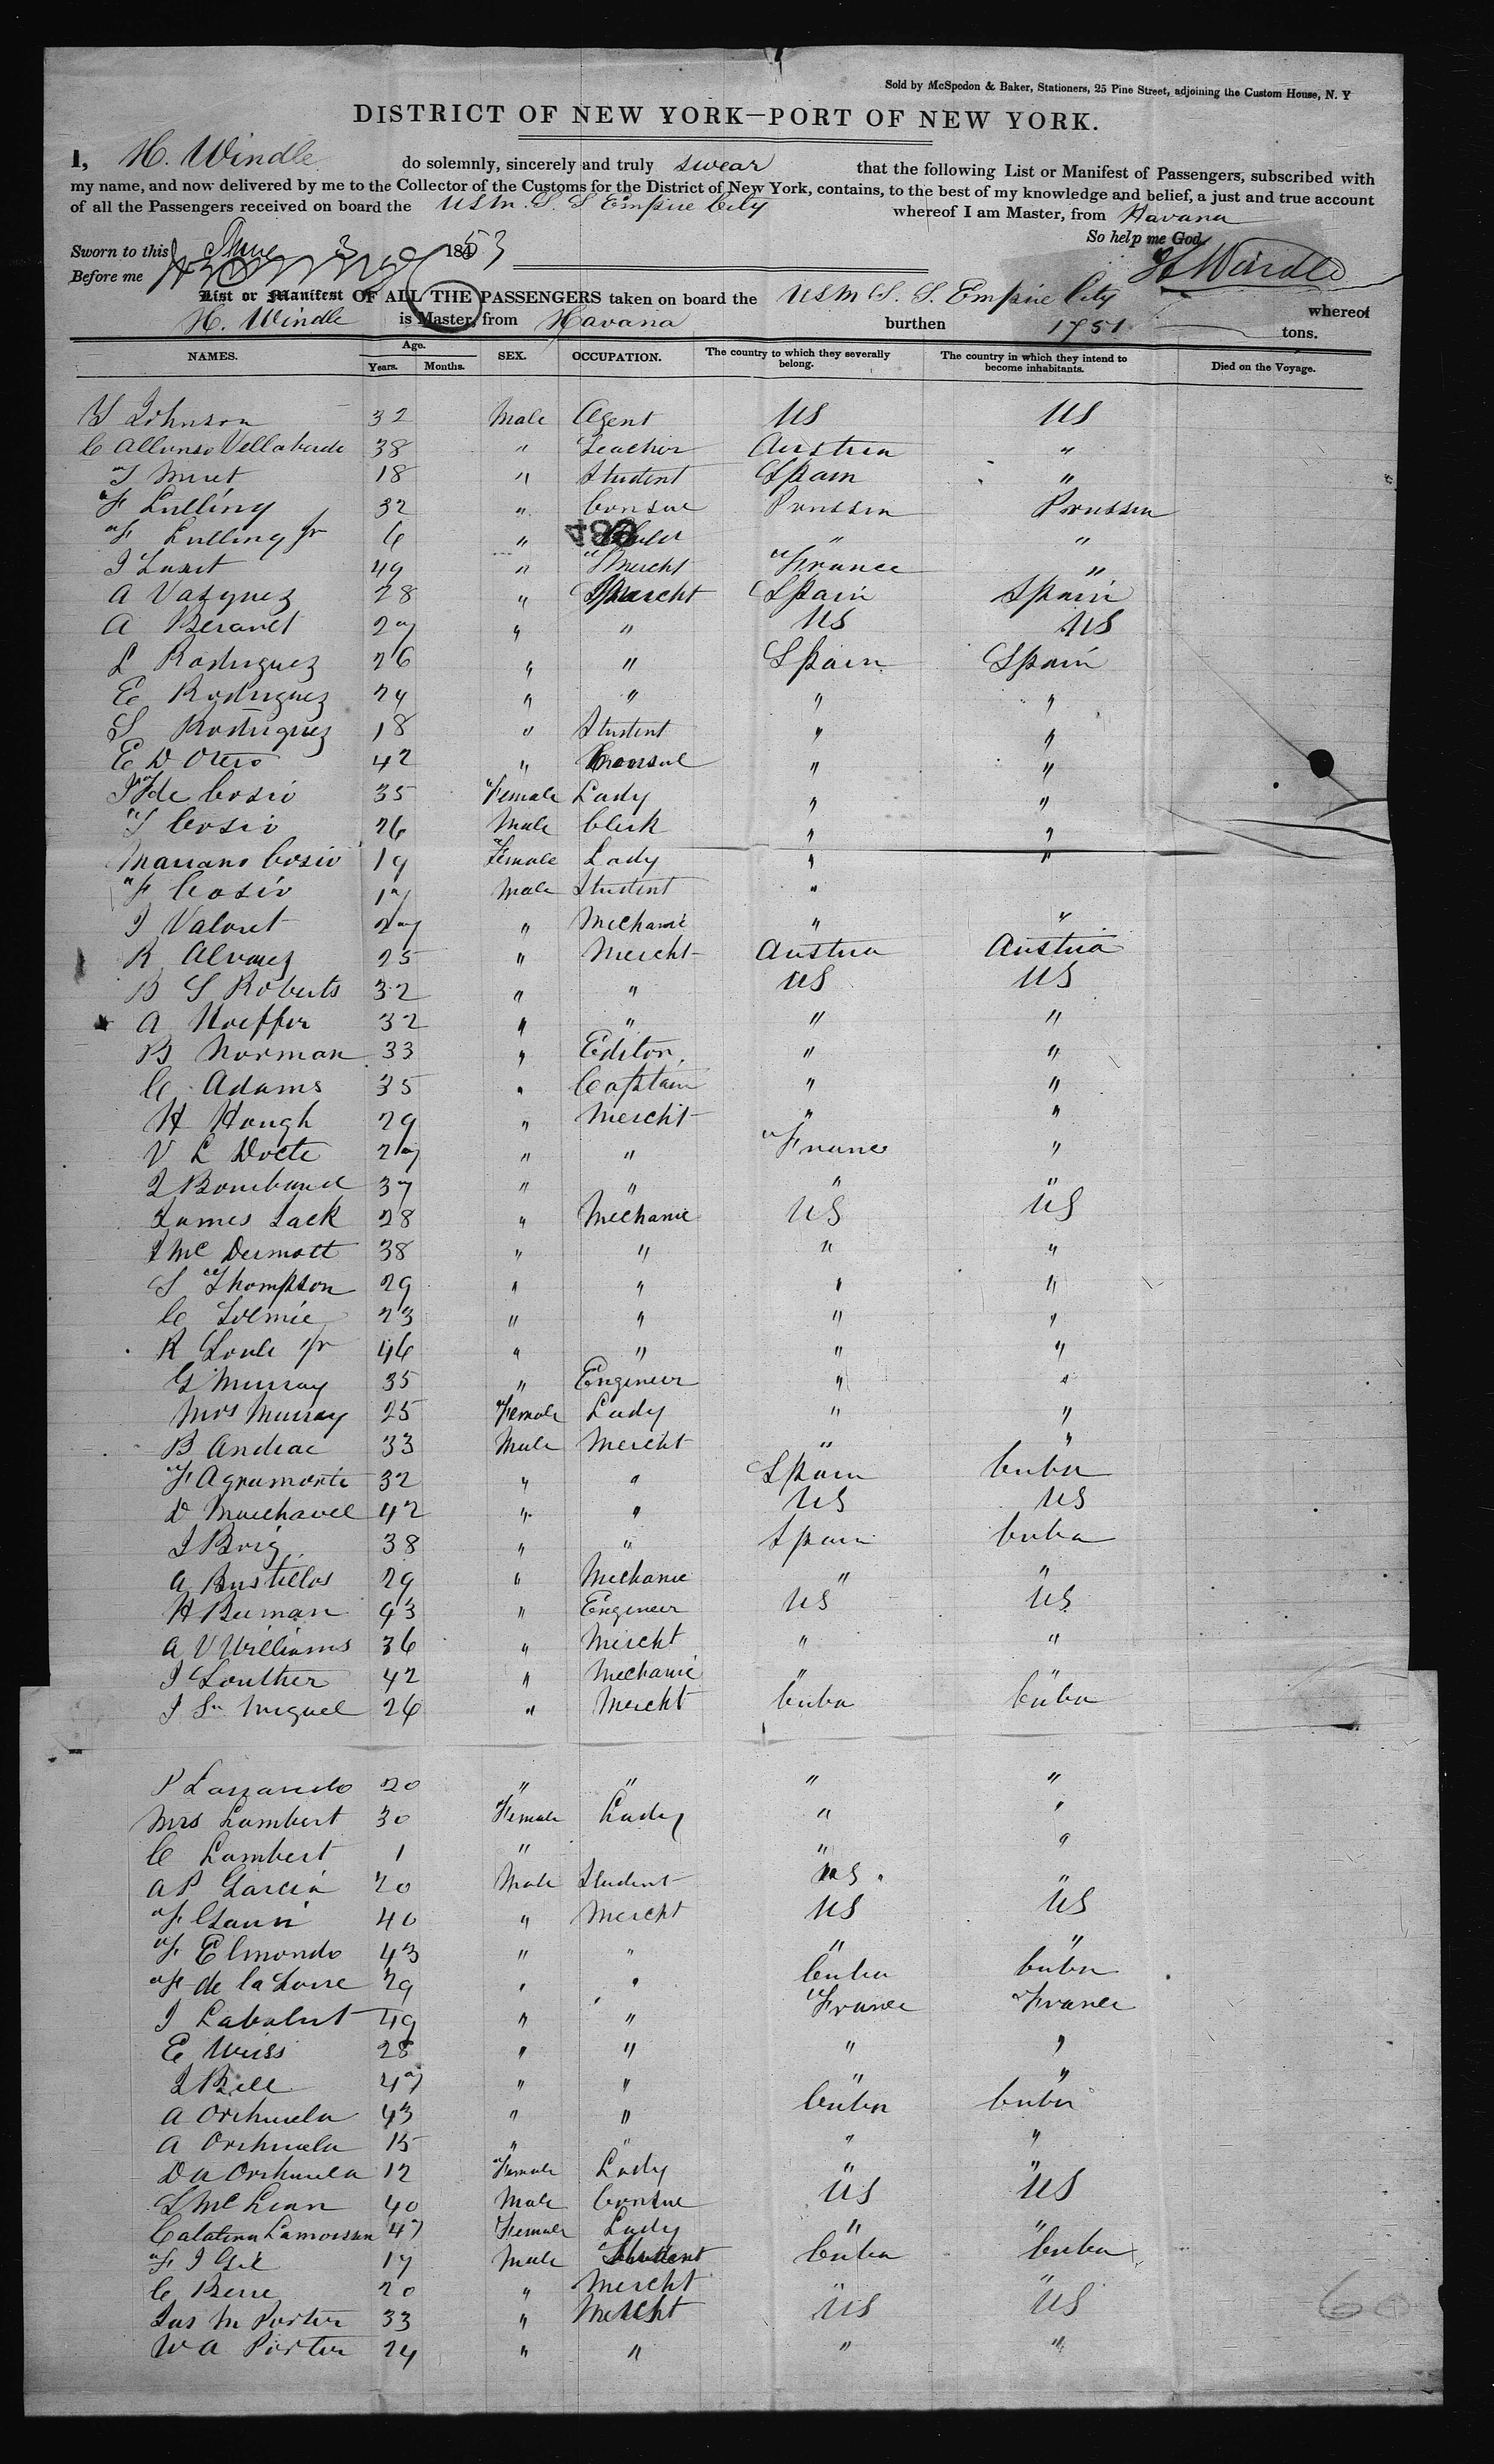 Sold by McSpedon & Baker, Stationers, 25 Pine Street, adjoining the Custom House, N. Y
DISTRICT OF NEW YORK—PORT OF NEW YORK.
I, H. Windle do solemnly, sincerely and truly swear that the following List or Manifest of Passengers, subscribed with
my name, and now delivered by me to the Collector of the Customs for the District of New York, contains, to the best of my knowledge and belief, a just and true account
of all the Passengers received on board the USM. S. S Empire City whereof I am Master, from Havana
So help me God.
Sworn to this June 3 1853
H Windle
Before me
List or Manifest OF ALL THE PASSENGERS taken on board the USM S. S. Empire City whereof
H. Windle is Master, from Havana burthen 1751 tons.
NAMES. Age. Years. Months. SEX. OCCUPATION. The country to which they severally belong. The country in which they intend to become inhabitants. Died on the Voyage.
S Johnson 32 Male Agent US US
C Allonso 38 " Teacher Austria "
18 " Student Spain "
F Lulling 32 " Consul Prussia Prussia
F Lulling Jr 6 " " "
480
49 " Mercht France "
A Vazquez 28 " Mercht Spain Spain
A 27 " " US US
L Rodriguez 26 " " Spain Spain
E Rodriguez 24 " " " "
S Rodriguez 18 " Student " "
E D Otero 42 " Consul " "
de Cosio 35 Female Lady " "
T Cosio 26 Male Clerk " "
Mariano Cosio 19 Female Lady " "
F Cosio 17 Male Student "
J Valont 27 " Mechanic " "
R Alvarez 25 " Mercht Austria Austria
B S Roberts 32 " " US US
A Hoeffer 32 " " " "
B Norman 33 " Editor. " "
C Adams 35 " Captain " "
H Hough 29 " Mercht " "
V L Docte 27 " " France "
37 " " " "
James Lack 28 " Mechanic US US
J McDermott 38 " " " "
S Thompson 29 " " " "
C 23 " " " "
R Jr 46 " " " "
G Murray 35 " Engineer " "
Mrs Murray 25 Female Lady " "
B Andrae 33 Male Mercht " "
F Agramonte 32 " " Spain Cuba
D 42 " " US US
J 38 " " Spain Cuba
A Bustillos 29 " Mechanic " "
H Beeman 43 " Engineer US US
A V Williams 36 " Mercht " "
J Louther 42 " Mechanic " "
J Sn Miguel 26 " Mercht Cuba Cuba
P 20 " " " "
Mrs Lambert 30 Female Lady " "
C Lambert 1 " " "
A P Garcia 20 Male Student US "
F 40 " Mercht US US
F Elmondo 43 " " " "
F de la 29 " " Cuba Cuba
J 49 " " France France
E Weiss 28 " " " "
J Bell 47 " " " "
A Orihuela 43 " " Cuba Cuba
A Orihuela 15 " " " "
D A Orihuela 12 Female Lady " "
McLean 40 Male Consul US US
Catalina 47 Female Lady " "
F J Gil 17 Male Student Cuba Cuba
C 20 " Mercht " "
Jas M Porter 33 " Mercht US US
W A Porter 24 " " " "
60